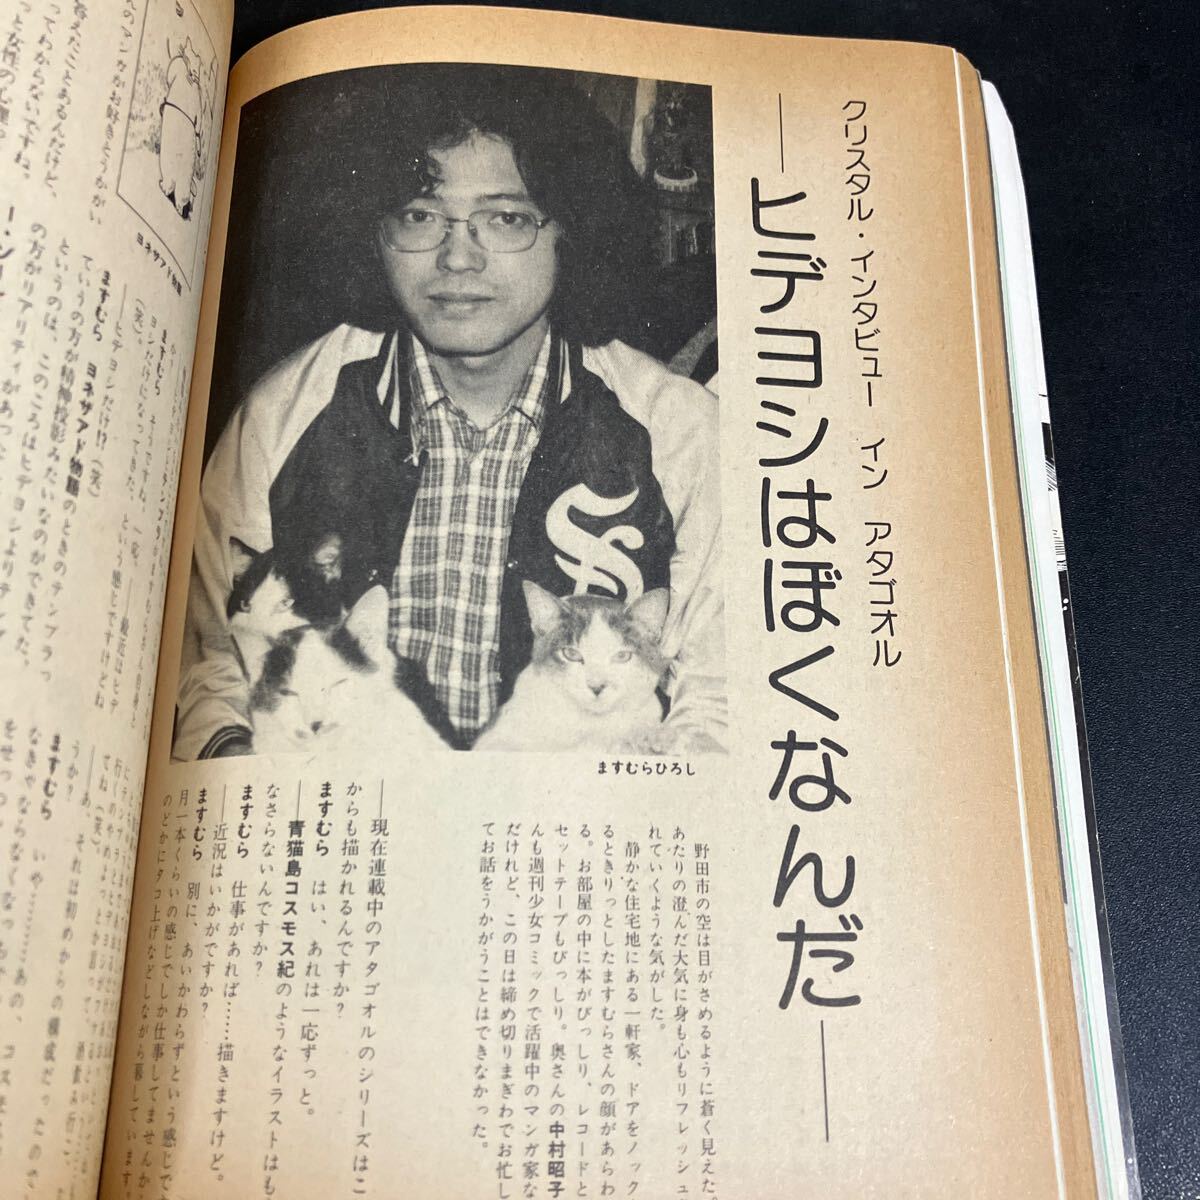 クリスタル・インタビュー イン アタゴオル
――ヒデヨシはぼくなんだ――
ますむらひろし
野田市の空は目がさめるように蒼く見えた。
あたりの澄んだ大気に身も心もリフレッシュ
れていくような気がした。
静かな住宅地にある一軒家、ドアをノック
るときりっとしたますむらさんの顔があらわ
る。お部屋の中に本がびっしり、レコードと
セットテープもびっしり。奥さんの中村昭子
んも週刊少女コミックで活躍中のマンガ家な
だけれど、この日は締め切りまぎわでお忙し
てお話をうかがうことはできなかった。
――現在連載中のアタゴオルのシリーズはこ
からも描かれるんですか？
ますむら はい、あれは一応ずっと。
――青猫島コスモス紀のようなイラストはも
なさらないんですか？
ますむら 仕事があれば……描きますけど。
――近況はいかがですか？
ますむら 別に、あいかわらずという感じで
月一本くらいの感じでしか仕事してませんか
のどかにタコ上げなどしながら暮しています。
ヨネザアド物語
んのマンガがお好きとうかがい
答えたことあるんだけど、
ってわからないですね。
ますむら そうですね。一応
ヨシだけになってきた、という感じですけどね
（笑）。 ――最近はヒデ
――ヒデヨシだけ!?（笑）
ますむら ヨネザアド物語のときのテンプラっ
ていうの方が精神投影みたいなのができてた。
というのは、このころはヒデヨシよりテンプ
の方がリアリティがあった
てね（笑）。
――あ、それは初めからの構成だっ
うか？
ますむら いや…………あの、コス
なきゃならなくなっ